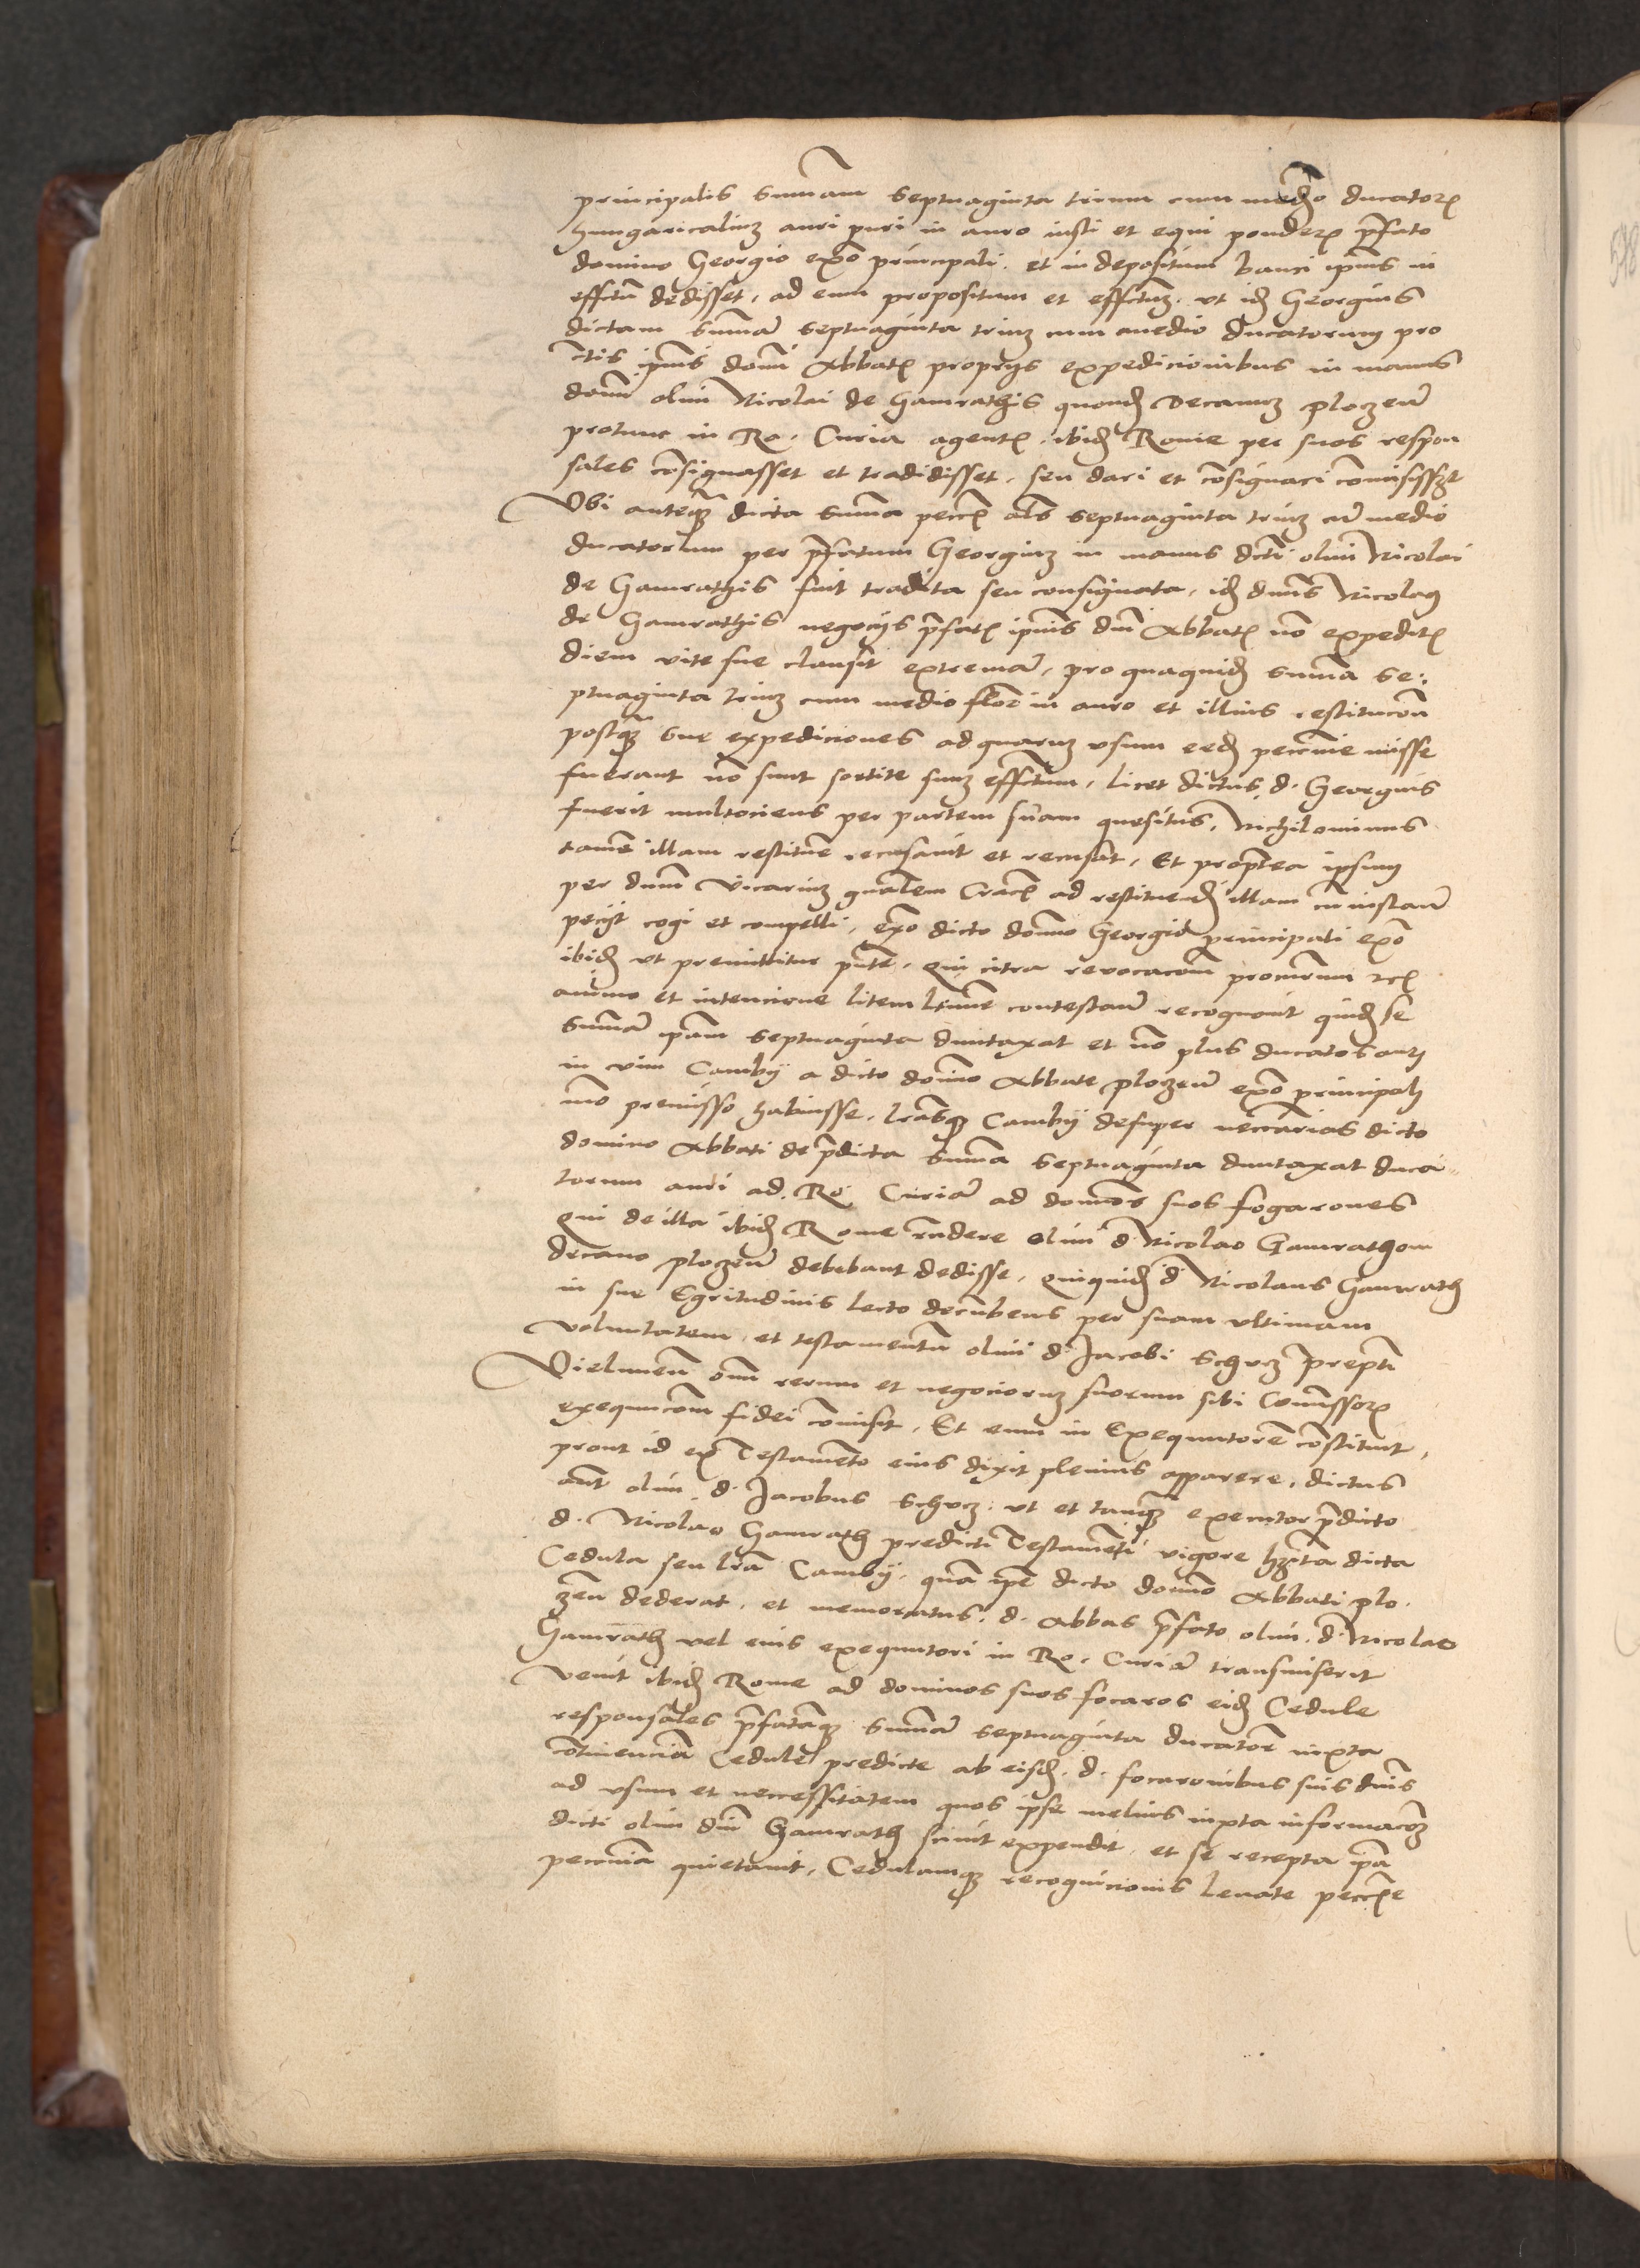 principalis sumam septuaginta trium cum medio ducatorum
hungaricalium auri puri in auro iusti et equi ponderis prefato
domino Georgio exo principali. et in depositum banci ipius in
effectu dedisset, ad eum propositum et effectum. ut idem Georgius
dictam sumam septuaginta trium cum medio ducatorum pro
ctis ipius domi Abbatis proprys expedicionibus in manus
domi olim Nicolai de Gamrathis quondam Decanum ploczen
protunc in Ro. Curia agentis. ibidem Rome per suos respon
sales consignasset et tradidisset, seu dari et consignari comisisset
Ubi antequam dicta suma peccu als septuaginta trium cum medio
ducatorum per prefatum Georgium in manus dicti olim Nicolai
de Gamrathis fuit tradita seu consignata, idem dnus Nicolaus
de Gamrathis negocys prefatis ipius dni Abbatis non expeditis
diem vite sue clausit extremam, pro quaquidem suma se:
ptuaginta trium cum medio flor in auro et illius restitucion
postquam sue expediciones ad quarum usum eedem peccunie misse
fuerant non sunt sortite suum effectum, licet dictus d. Georgius
fuerit multociens per partem suam quesitus, Nichilominus
tamen illam restituere recusavit et recusat, Et propterea ipsum
per dnum Vicarium gnalem Crac ad restituendum illam cum instan
pecyt cogi et compelli, exo dicto domino Georgio principali exo
ibidem ut premittitur pnte. Qui citra revocacom procurum etc
animo et intencione litem ltime contestan recognovit quidem se
sumam ipam septuaginta duntaxat et non plus ducatos auri
in vim Camby a dicto domino Abbate ploczen exo principali
mo premisso habuisse, lrasque Camby desuper neccarias dicto
domino Abbati de predicta suma septuaginta duntaxat duca
torum auri ad. Ro. Curiam ad dominos suos fogarones
qui de illa ibidem Rome rndere olim d Nicolao Gamrathom
decano ploczen debebant dedisse, quiquidem d Nicolaus Gamrath
in sue Egritudinis lecto decumbens per suam ultimam
voluntatem et testamentum olim d. Jacobi Schucz prepti
Vielunen omi rerum et negociorum suorum sibi Comissorum
exequucom fidei comisit, Et eum in Exequutorem constituit,
prout id ex Testamento eius dixit plenius apparere, dictus
aut olim d. Jacobus Schucz. ut et tanquam executor predicto
d. Nicolao Gamrath predicti Testamenti vigore hita dicta
Cedula seu lra Camby. quam ipe dicto domino Abbati plo.
zen dederat. et memoratus. d. Abbas prefato olim. d. Nicolao
Gamrath vel eius exequutori in Ro. Curiam transmiserit
venit ibidem Rome ad dominos suos focaros eidem Cedule
responsales prefatamque sumam septuaginta ducatorum iuxta
continenciam Cedule predicte ab eisdem. d. focaronibus suis dnis
ad usum et neccessitatem quos ipse melius iuxta informacom
dicti olim dni Gamrath scivit expendit, et se recepta ipa
peccunia quietavit, Cedulamque recognicionis levate peccunie